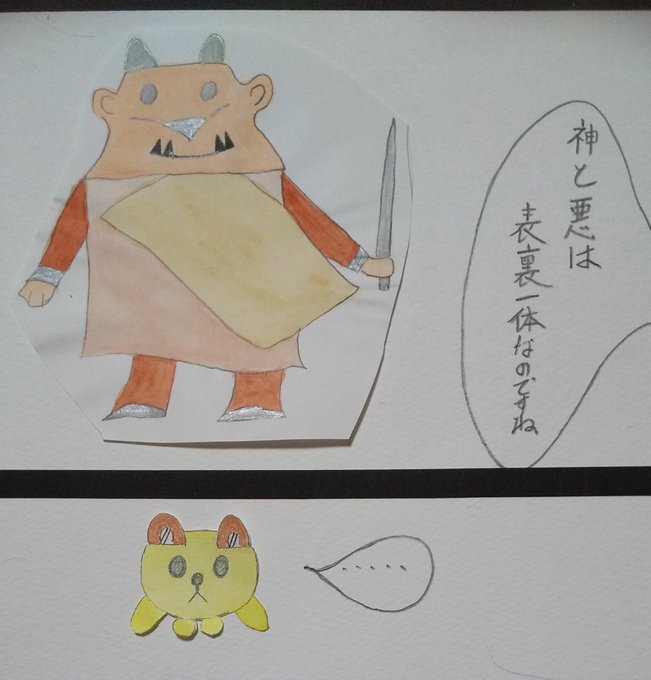 神と悪は
表裏一体なのですね
......